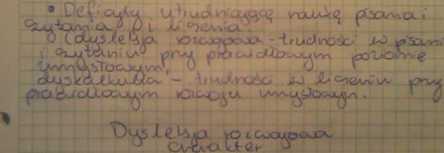 • Deficyty utrudniające naukę pisania i
czytania i liczenia.
dysleksja rozwojowa - trudności w pisaniu
i czytaniu przy prawidłowym poziomie
umysłowym
dyskalkulia - trudność w liczeniu przy
prawidłowym rozwoju umysłowym.
Dysleksja rozwojowa
charakter